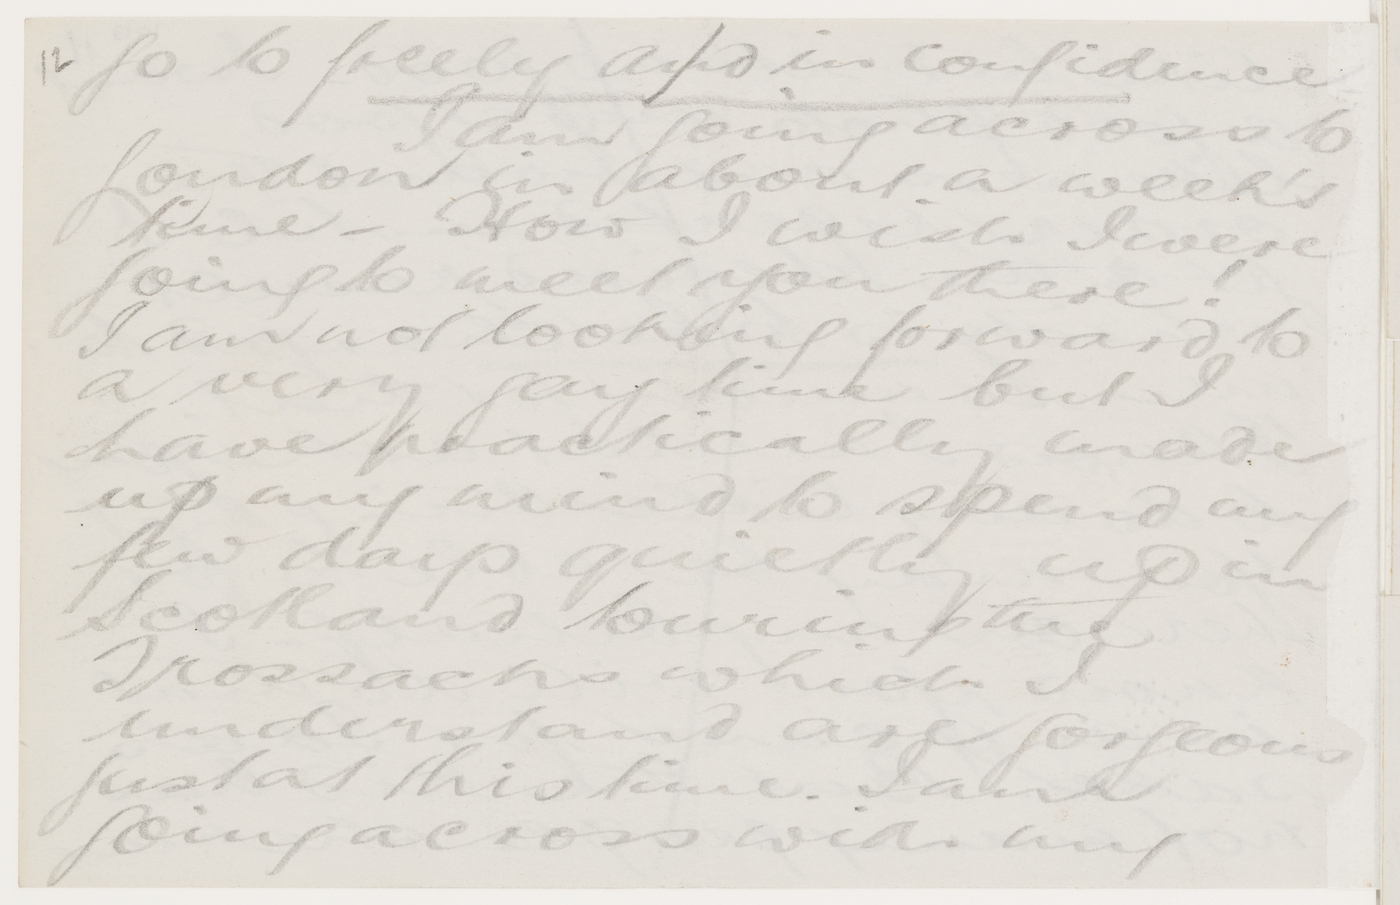 12 go to freely and in confidence
I am going across to
London in about a week's
time - How I wish I were
going to meet you there!
I am not looking forward to
a very gay time but I
have practically made
up my mind to spend my
few days quietly up in
Scotland touring the
Trossachs which I
understand are gorgeous
just at this time. I am
going across with my